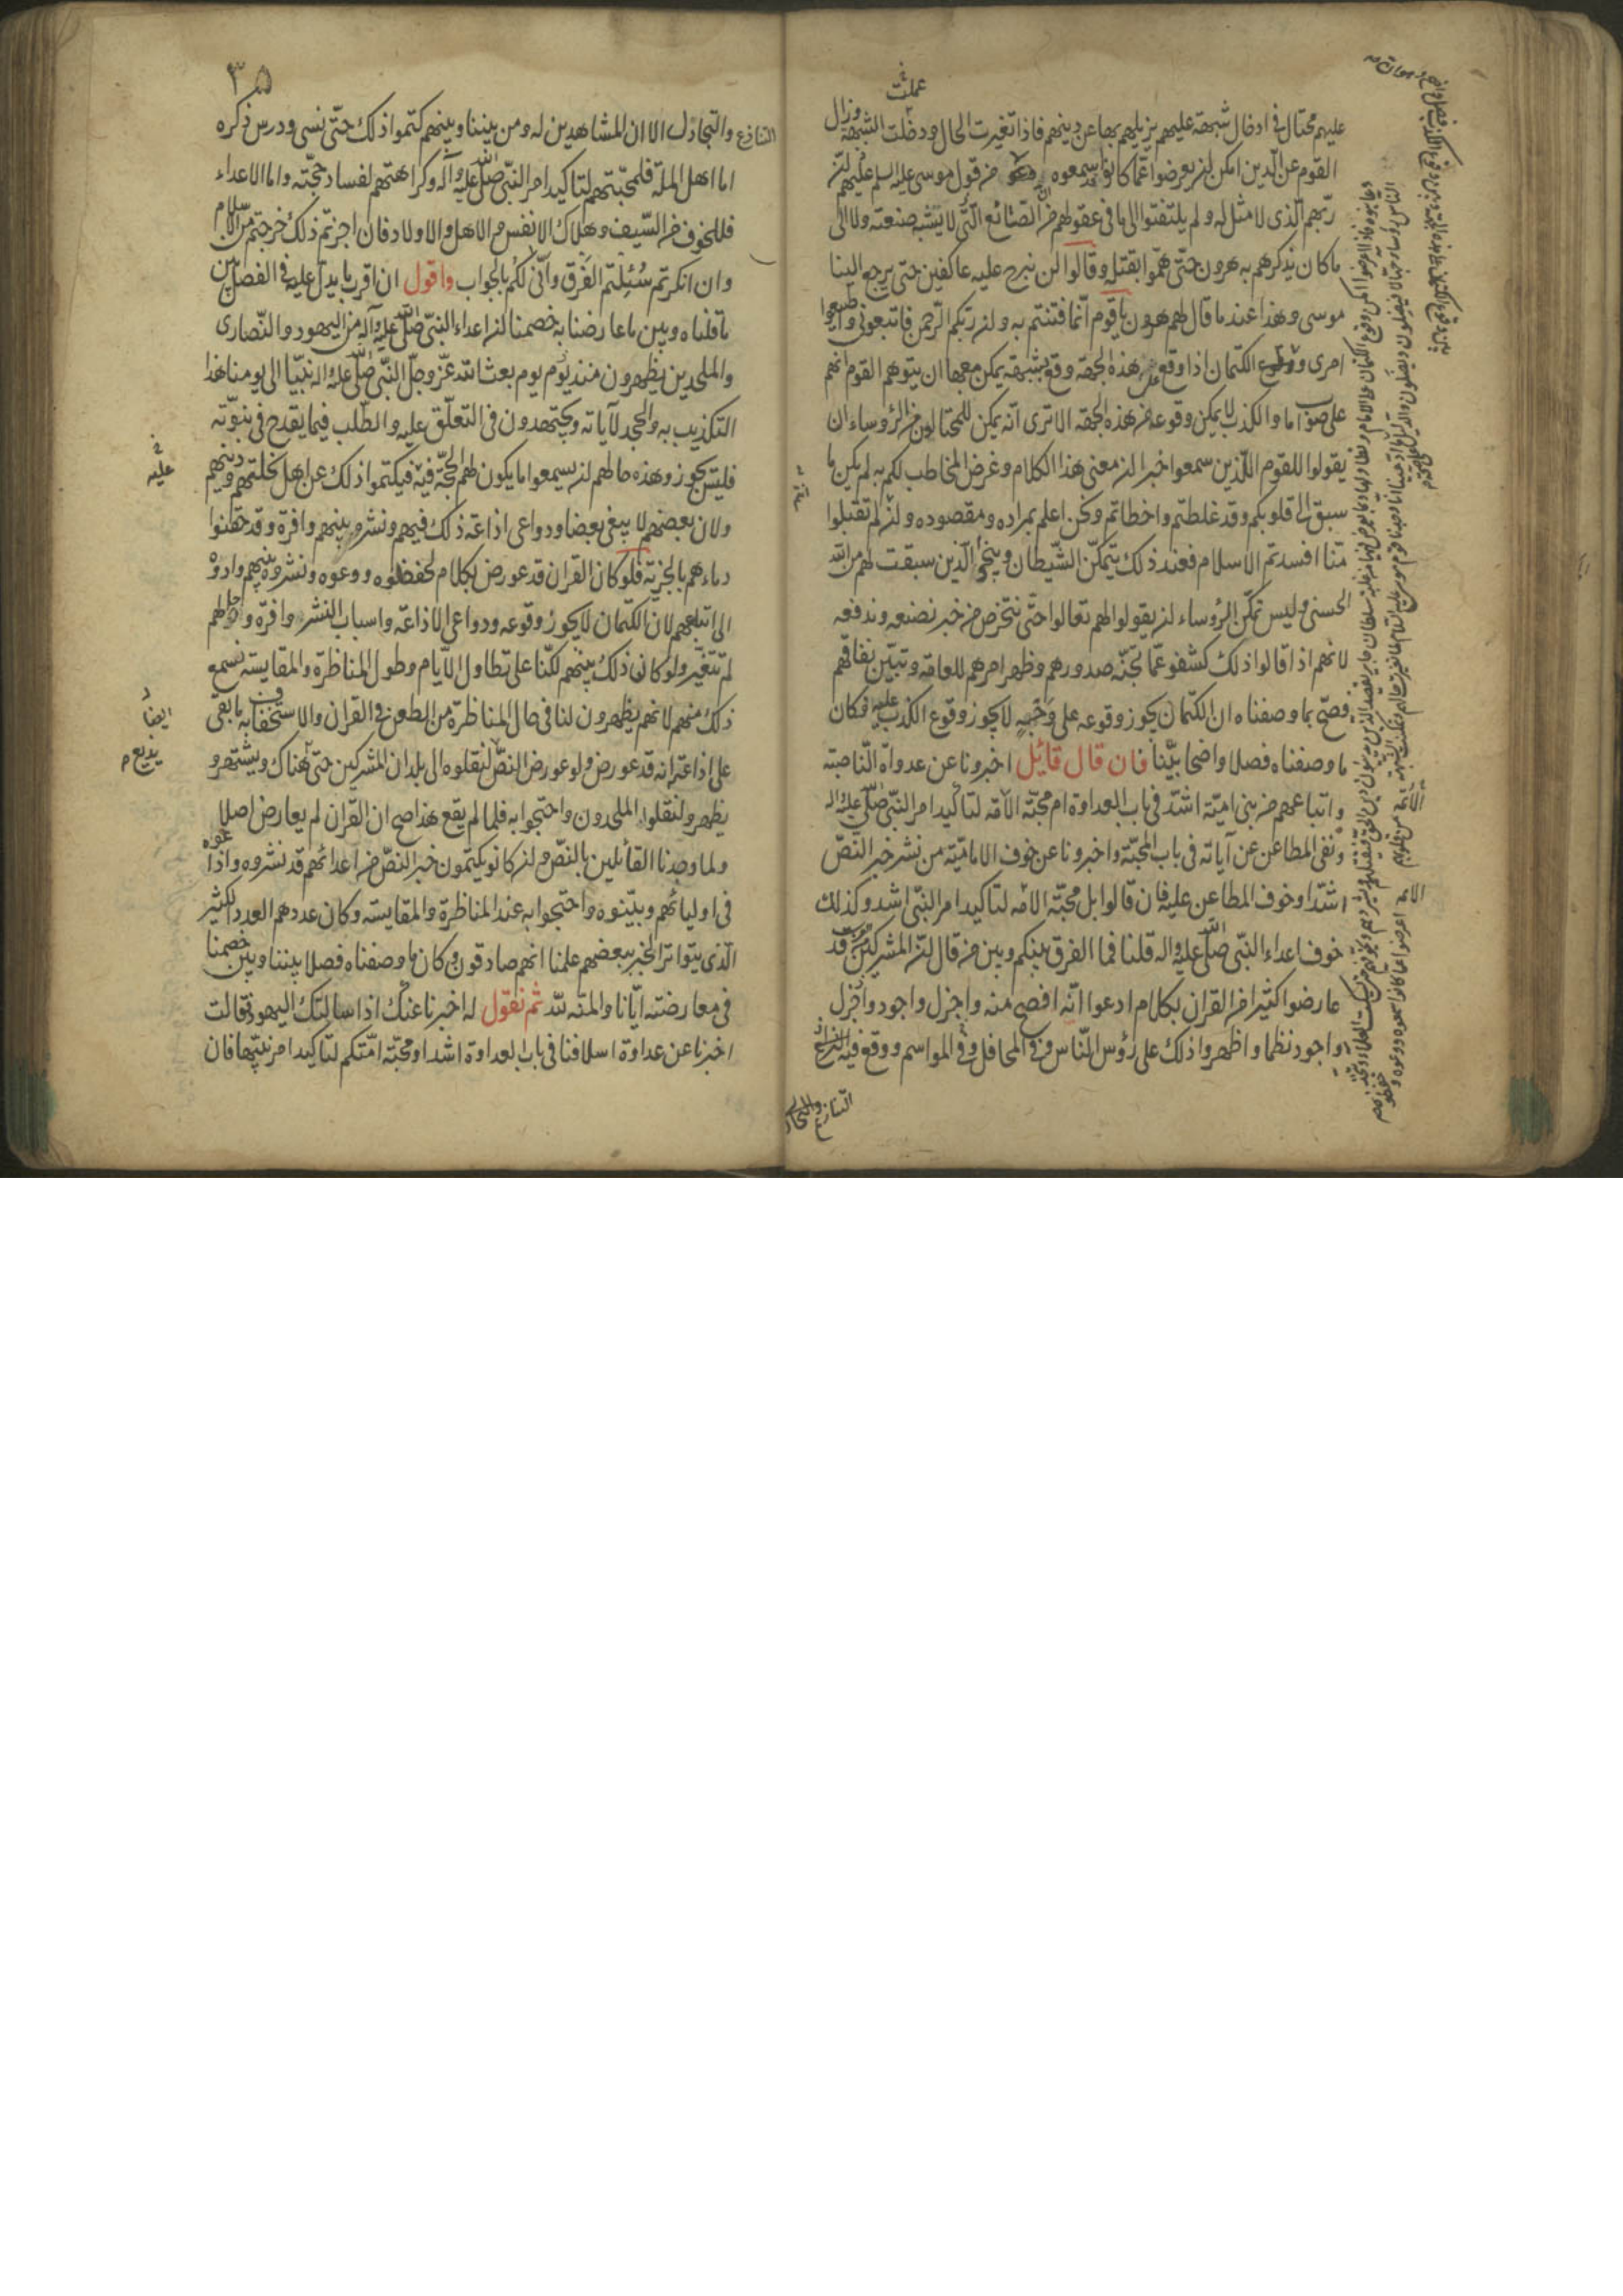 عليهم محتال في ادخال شبهة عليهم يزيلهم بها عن دينهم فاذا تغيرت الحال ودخلت الشبهة وزال
القوم عن الدين امكن ان يعرضوا عما كانوا قد سمعوه من قول موسى عليه السلم عليهم ان
ربهم الذى لا مثل له ولم يلتفتوا الى ما فى عقولهم من الصنائع التى لا يشبه صنعته ولا الى
ما كان يذكرهم به هرون حتى هموا بقتله وقالوا لن نبرح عليه عاكفين حتى يرجع الينا
موسى وهذا عند ما قال لهم هرون يا قوم انما فتنتم به وان ربكم الرحمن فاتبعونى واطيعوا
امرى ووقوع الكتمان اذا وقع من هذه الجهة وقع بشبهة يمكن معها ان يتوهم القوم انهم
على صواب اما والكذب لا يمكن وقوعه من هذه الجهة الا ترى انه يمكن للمحتالين من الرؤساء ان
يقولوا للقوم الذين سمعوا خبرا ان معنى هذا الكلام وغرض المخاطب لكم به لم يكن ما
سبق الى قلوبكم وقد غلطتم واخطاتم ونحن اعلم بمراده ومقصوده وان لم تقبلوا
منا افسدتم الاسلام فعند ذلك يتمكن الشيطان وينجو الذين سبقت لهم من الله
الحسنى وليس تمكن الرؤساء ان يقولوا لهم تعالوا حتى نتخرص من خبر نصنعه وندفعه
لانهم اذا قالوا ذلك كشفو عما تجنه صدورهم وظهر امرهم للعامة وتبين نفاقهم
فصح بما وصفناه ان الكتمان يجوز وقوعه على وجه لا يجوز وقوع الكذب عليه فكان
ما وصفناه فصلا واضحا بينا فان قال قائل اخبرونا عن عدواة الناصبة
واتباعهم من بنى امية اشد فى باب العداوة ام محبة الامة لتاكيد امر النبى صلى عليه واله
ونفى المطاعن عن آياته فى باب المحبة واخبرونا عن خوف الامامية من نشر خبر النص
اشد او خوف المطاعن عليه فان قالوا بل محبة الامة لتاكيد امر النبى اشد وكذلك
خوف اعداء النبى صلى الله عليه واله قلنا فما الفرق بينكم وبين من قال ان المشركين قد
عارضوا كثيرا من القران بكلام ادعوا انه افصح منه واجزل واجود واجزل
واجود نظما واظهروا ذلك على رؤس الناس وفى المحافل وفى المواسم ووقع فيه
التنازع والتجاذل
٣٥
التنازع والتجاذل الا ان المشاهدين له ومن بيننا وبينهم كتموا ذلك حتى نسى ودرس ذكره
اما اهل الملة فلمحبتهم لتاكيد امر النبى صلى الله عليه وآله وكراهتهم لفساد حجته واما الاعداء
فللخوف من السيف وهلاك الانفس والاهل والاولاد فان اجزتم ذلك خرجتم من الاسلام
وان انكرتم سئلتم الفرق وانى لكم بالجواب واقول ان اقرب ما يدل عليه فى الفصل بين
ما قلناه وبين ما عارضنا به خصمنا ان اعداء النبى صلى الله عليه وآله من اليهود والنصارى
والملحدين يظهرون منذ يوم يوم بعث الله عز وجل النبى صلى الله عليه واله نبيا الى يومنا هذا
التكذيب به والجحد لآياته ويجتهدون فى التعلق عليه والطلب فيما يقدح فى نبوته
فليس يجوز وهذه حالهم ان يسمعوا ما يكون لهم الحجة فيه فيكتموا ذلك عن اهل خلتهم ودينهم
ولان بعضهم لا يبغى بعضا ودواعى اذاعة ذلك فيهم ونشره بينهم وافرة وقد حقنوا
دماءهم بالجزية فلو كان القران قد عورض بكلام لحفظوه ووعوه ونشروه بينهم وادوه
الى اتباعهم لان الكتمان لا يجوز وقوعه ودواعى الاذاعة واسباب النشر وافرة واحوالهم
لم تتغير ولو كان ذلك بينهم لكنا على تطاول الايام وطول المناظرة والمقايسة نسمع
ذلك منهم لانهم يظهرون لنا فى حال المناظرة من الطعن فى القران والاستخفاف به ما بقى
على اذاعة انه قد عورض ولو عورض النص لنقلوه الى بلدان المشركين حتى هناك ويشتهر و
يظهر ولنقلوا الملحدون واحتجوا به فلما لم يقع هذا صح ان القران لم يعارض اصلا
ولما وجدنا القائلين بالنص وان كانو يكتمون خبر النص من اعدائهم قد نشروه واذاعوه
فى اوليائهم وبينوه واحتجوا به عند المناظرة والمقايسة وكان عددهم العدد الكثير
الذى يتواتر الخبر ببعضهم علمنا انهم صادقون وكان ما وصفناه فصلا بيننا وبين خصمنا
فى معارضته ايانا والمنة لله ثم نقول له اخبرنا عنك اذا سالتك اليهود فقالت
اخبرنا عن عداوة اسلافنا فى باب العداوة اشد او محبة امتكم لتاكيد امر نبيها فان
عليه
ايضا
يذيع